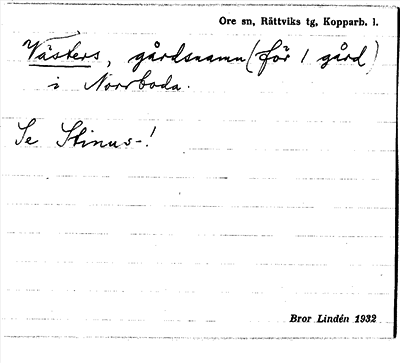 Ore sn, Rättviks tg, Kopparb. l.
Västers, gårdsnamn (för 1 gård)
i Norrboda.
Se Stinus-!
Bror Lindén 1932